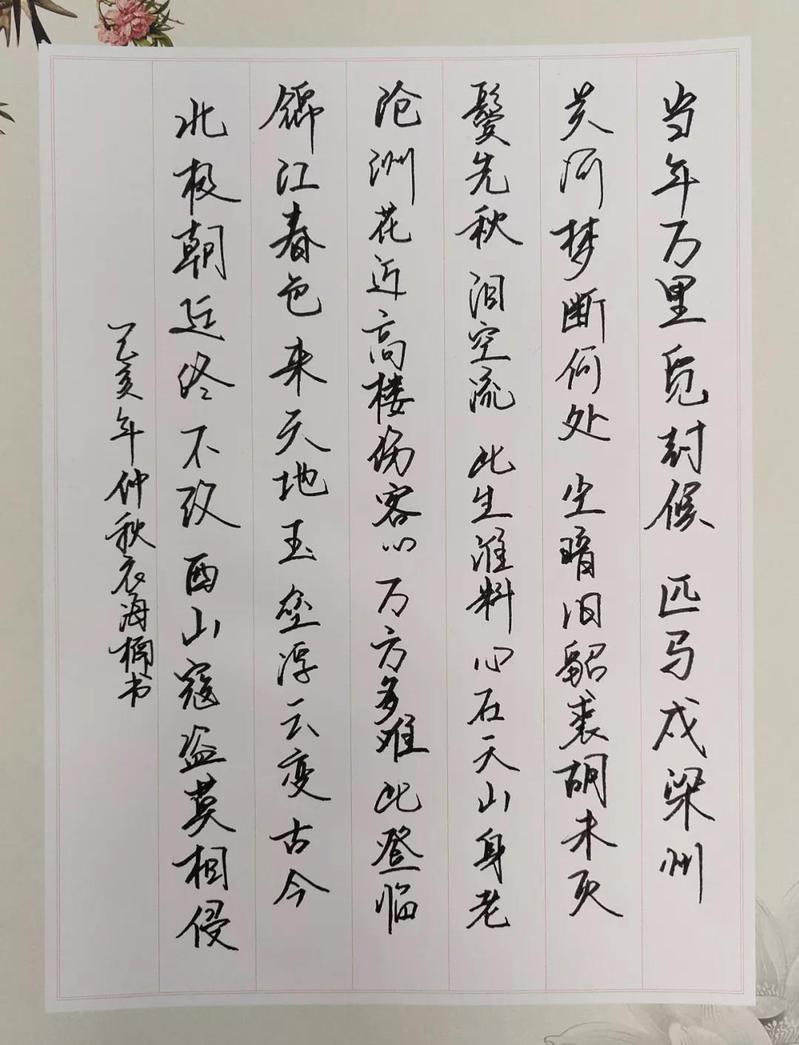 当年万里觅封候 匹马戍梁州
关河梦断何处 尘暗旧貂裘 胡未灭
鬓先秋 泪空流 此生谁料 心在天山 身老
沧洲 花近高楼伤客心 万方多难此登临
锦江春色来天地 玉垒浮云变古今
北极朝廷终不改 西山寇盗莫相侵
己亥年仲秋 衣海楠书